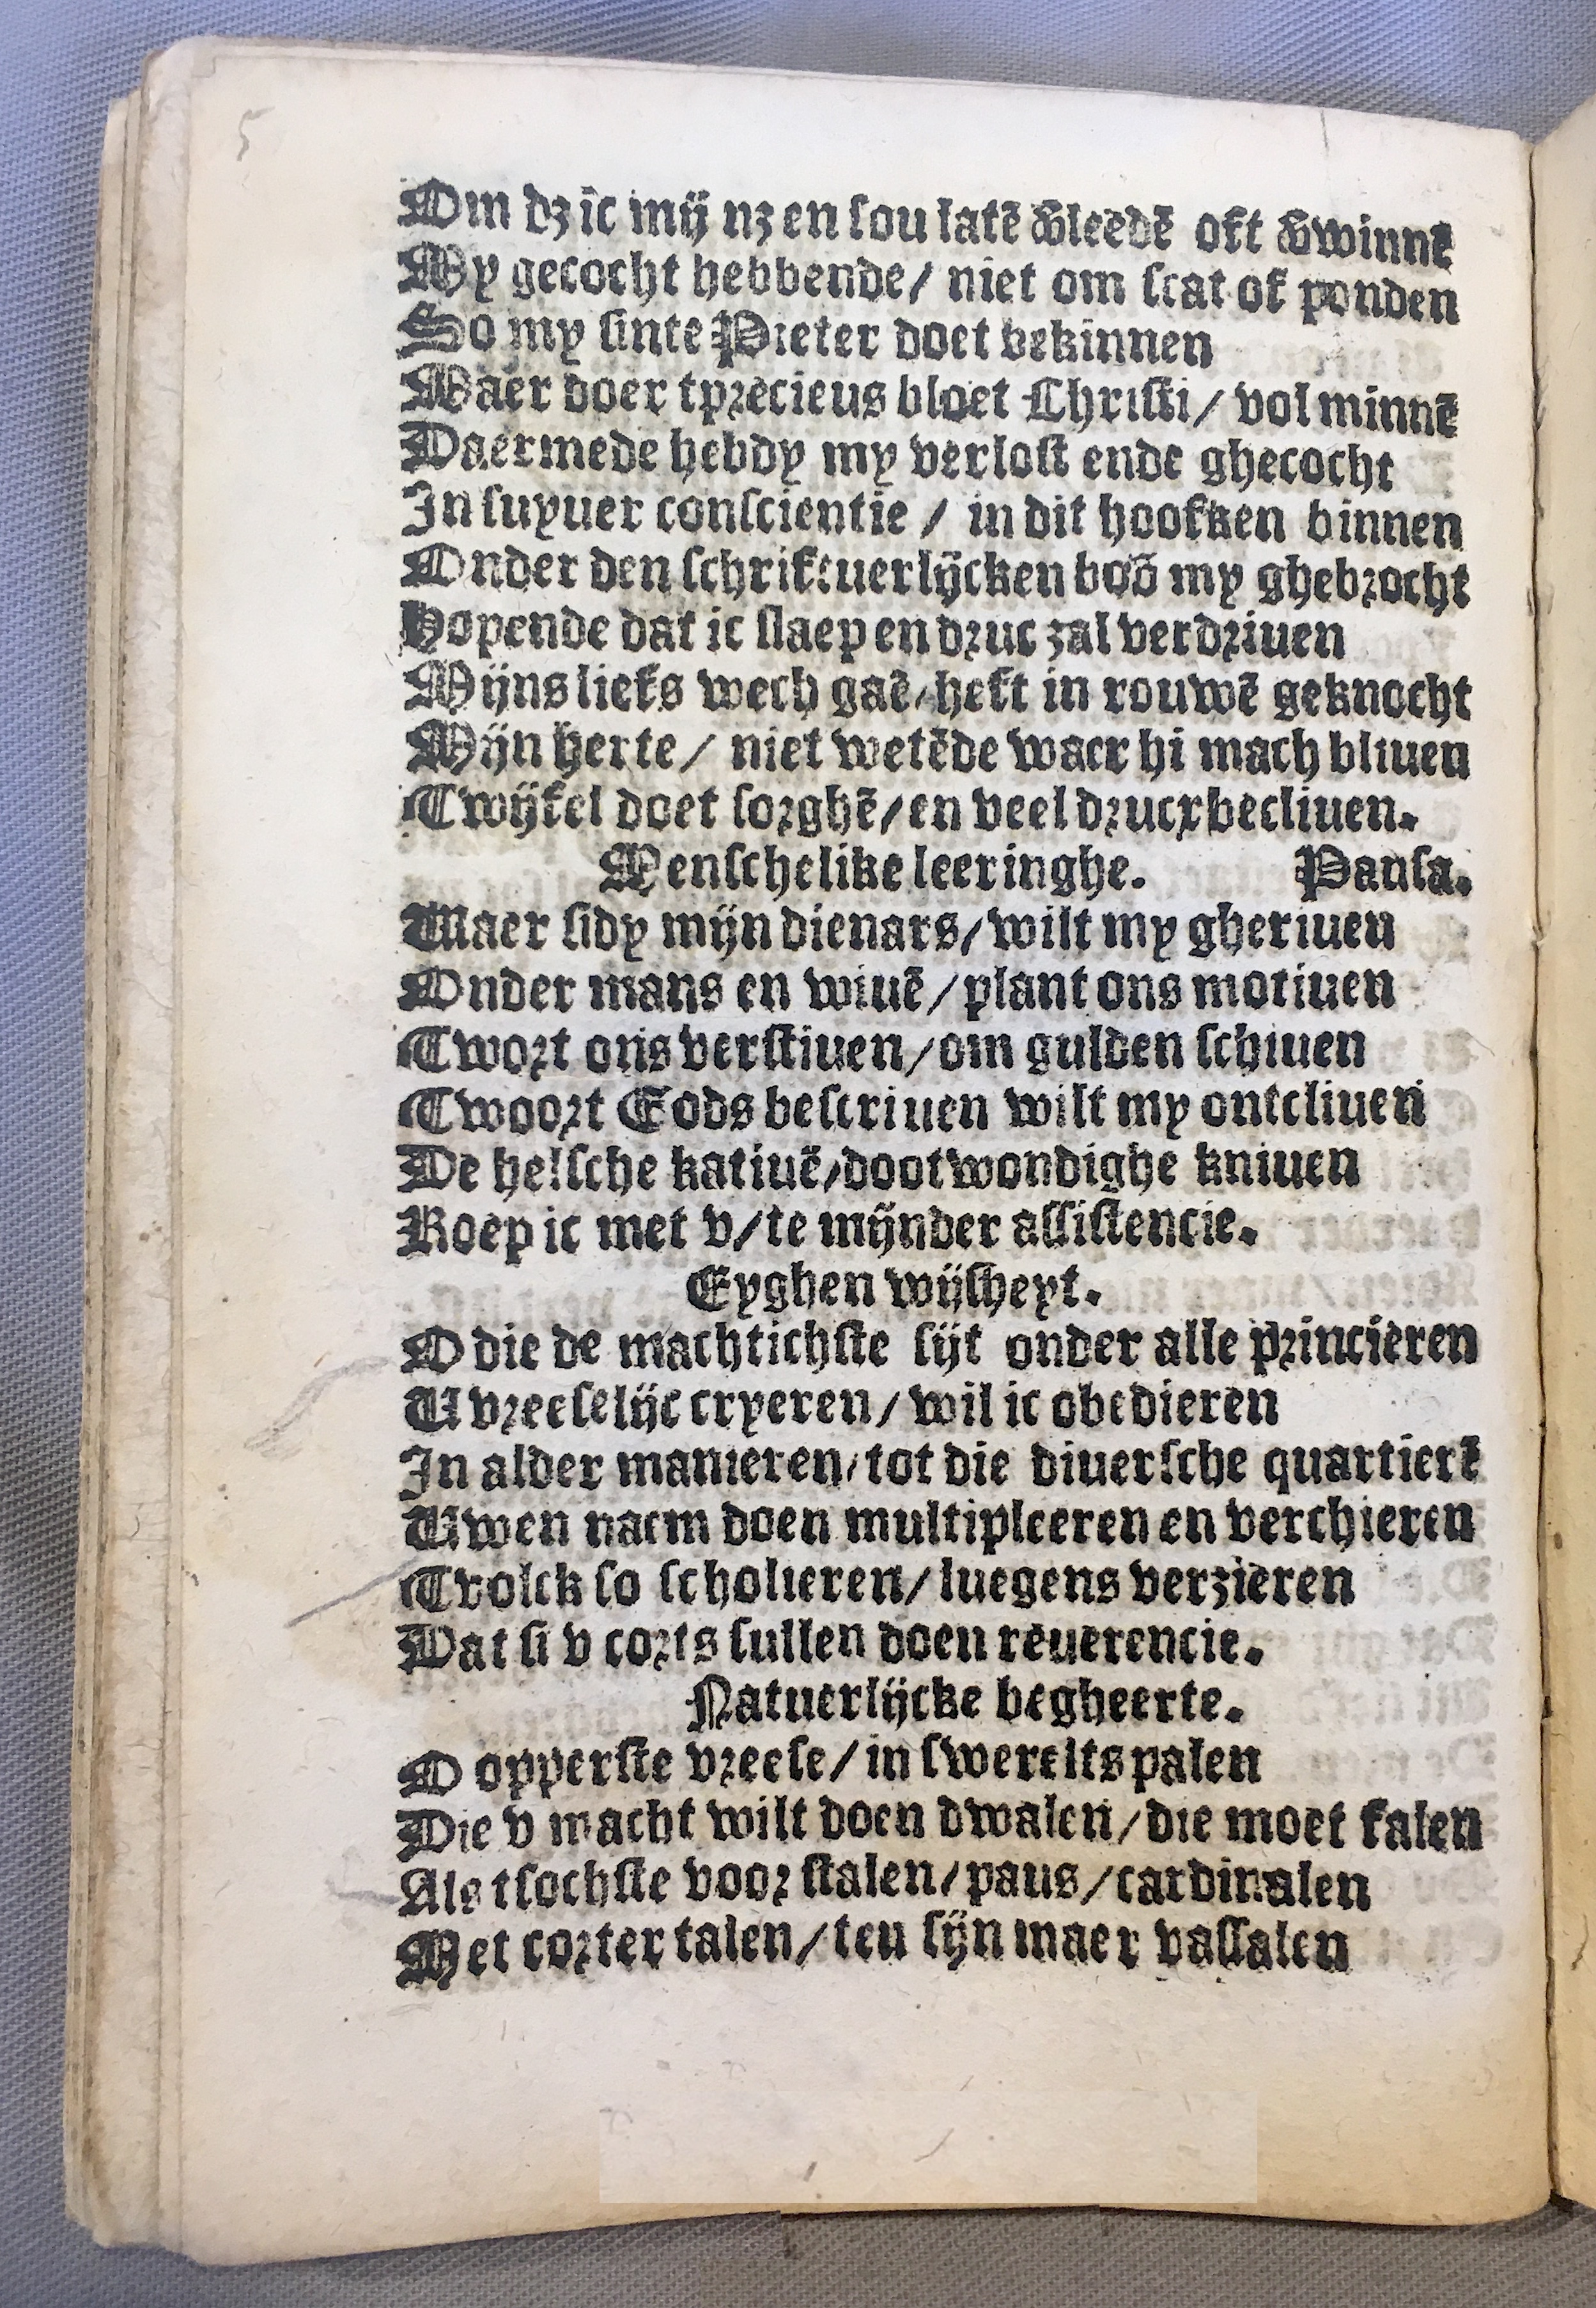 5
Om dz ic mij nz en sou latē v̄leedē oft v̄winnē
My gecocht hebbende/ niet om scat of ponden
So my sinte Pieter doet bekinnen
Waer doer tprecieus bloet Christi/ vol minnē
Daermede hebdy my verlost ende ghecocht
In suyuer conscientie / in dit hoofken binnen
Onder den schriftuerlijcken boō my ghebrocht
Hopende dat ic slaep en druc zal verdriuen
Mijns liefs wech gaē/heft in rouwē geknocht
Mijn herte/ niet wetēde waer hi mach bliuen
Twijfel doet sorghē/en veel drucx becliuen.
Menschelike leeringhe. Pausa.
Waer sidy mijn dienars/wilt my gheriuen
Onder mans en wiuē/plant ons motiuen
Twort ons verstiuen/om gulden schiuen
Twoort Gods bescriuen wilt my ontcliuen
De helsche katiuē/dootwondighe kniuen
Roep ic met v/te mijnder assistencie.
Eyghen wijsheyt.
O die de machtichste sijt onder alle princieren
U vreeselijc cryeren/wil ic obedieren
In alder manieren/tot die diuersche quartierē
Uwen naem doen multipleeren en verchieren
Tvolck so scholieren/luegens verzieren
Dat si v corts sullen doen reuerencie.
Natuerlijcke begheerte.
O opperste vreese/in swerelts palen
Die v macht wilt doen dwalen/die moet falen
Als tsochste voor stalen/paus/cardinalen
Met corter talen/ten sijn maer vassalen